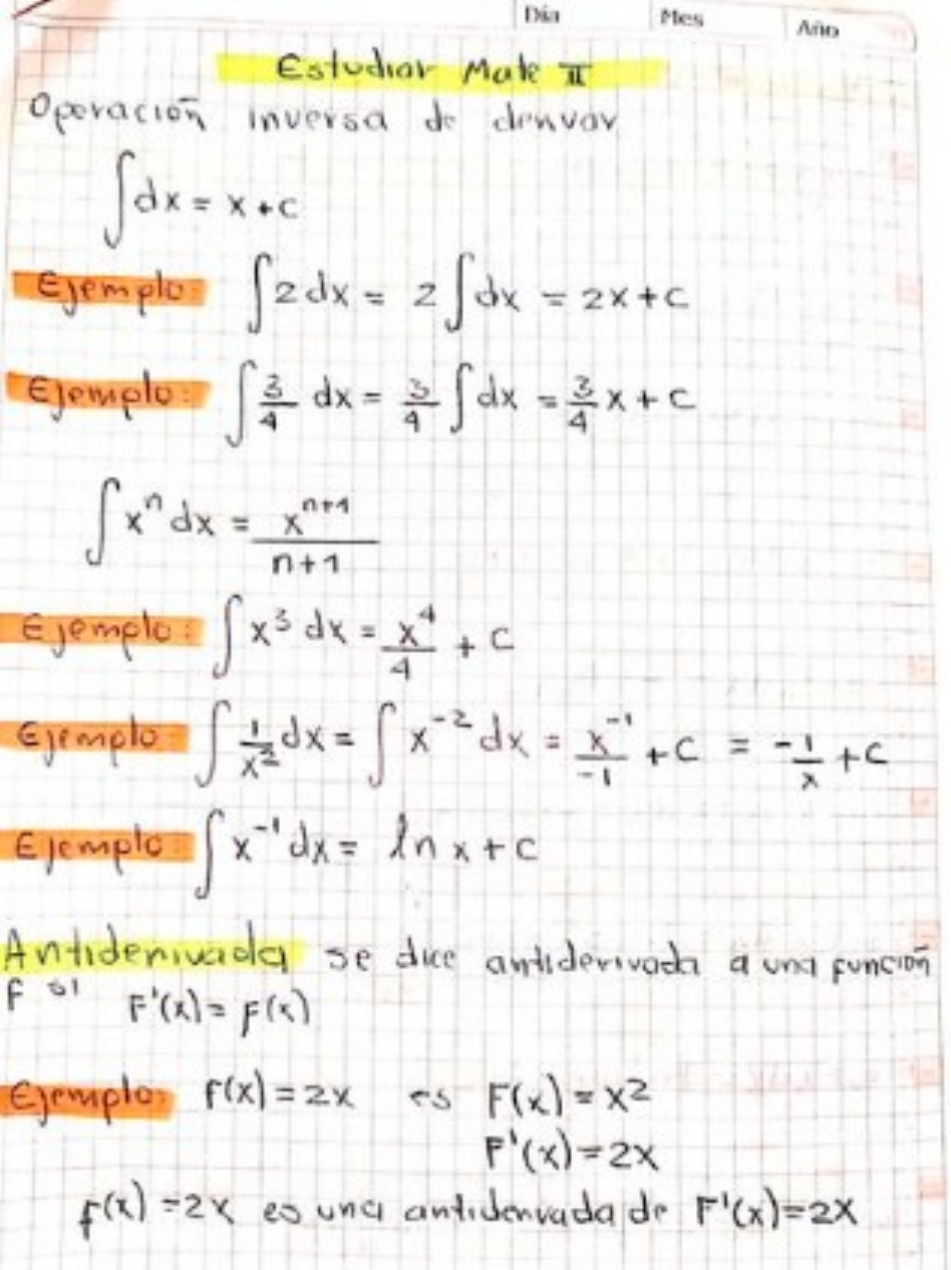 Día Mes Año
Estudiar Mate II
Operación inversa de derivar
∫dx = x + c
Ejemplo: ∫2 dx = 2∫dx = 2x + c
Ejemplo: ∫3/4 dx = 3/4 ∫dx = 3/4 x + c
∫xⁿ dx = xⁿ⁺¹/n+1
Ejemplo: ∫x³ dx = x⁴/4 + c
Ejemplo ∫1/x² dx = ∫x⁻² dx = x⁻¹/-1 + c = -1/x + c
Ejemplo ∫x⁻¹ dx = ln x + c
Antiderivada se dice antiderivada a una función
f si F'(x) = f(x)
Ejemplo: f(x) = 2x es F(x) = x²
F'(x) = 2x
f(x) = 2x es una antiderivada de F'(x) = 2x